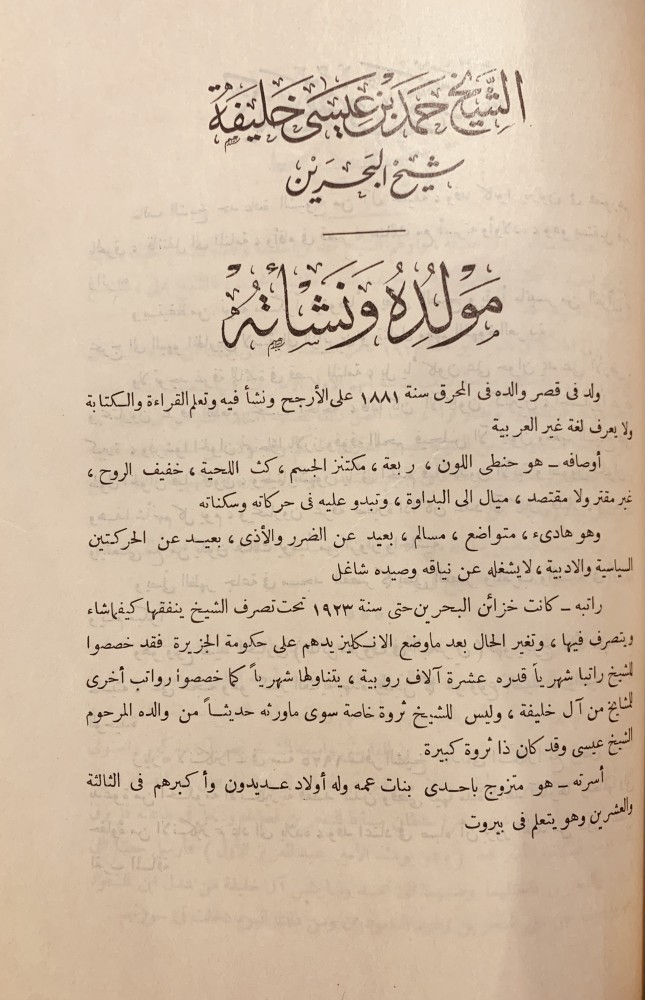 الشيخ حمد بن عيسى خليفة
شيخ البحرين
مولده ونشأته
ولد فى قصر والده فى المحرق سنة ١٨٨١ على الأرجح ونشأ فيه وتعلم القراءة والكتابة
ولا يعرف لغة غير العربية
أوصافه – هو حنطى اللون ، ربعة ، مكتنز الجسم ، كث اللحية ، خفيف الروح ،
غير مقتر ولا مقتصد ، ميال الى البداوة ، وتبدو عليه فى حركاته وسكناته
وهو هادىء ، متواضع ، مسالم ، بعيد عن الضرر والأذى ، بعيد عن الحركتين
السياسية والادبية ، لا يشغله عن نياقه وصيده شاغل
راتبه – كانت خزائن البحرين حتى سنة ١٩٢٣ تحت تصرف الشيخ ينفقها كيفما شاء
ويتصرف فيها ، وتغير الحال بعد ماوضع الانكليز يدهم على حكومة الجزيرة فقد خصصوا
للشيخ راتبا شهرياً قدره عشرة آلاف روبية ، يتناولها شهرياً كما خصصوا رواتب أخرى
للمشايخ من آل خليفة ، وليس للشيخ ثروة خاصة سوى ماورثه حديثاً من والده المرحوم
الشيخ عيسى وقد كان ذا ثروة كبيرة.
أسرته – هو متزوج باحدى بنات عمه وله أولاد عديدون وأكبرهم فى الثالثة
والعشرين وهو يتعلم فى بيروت